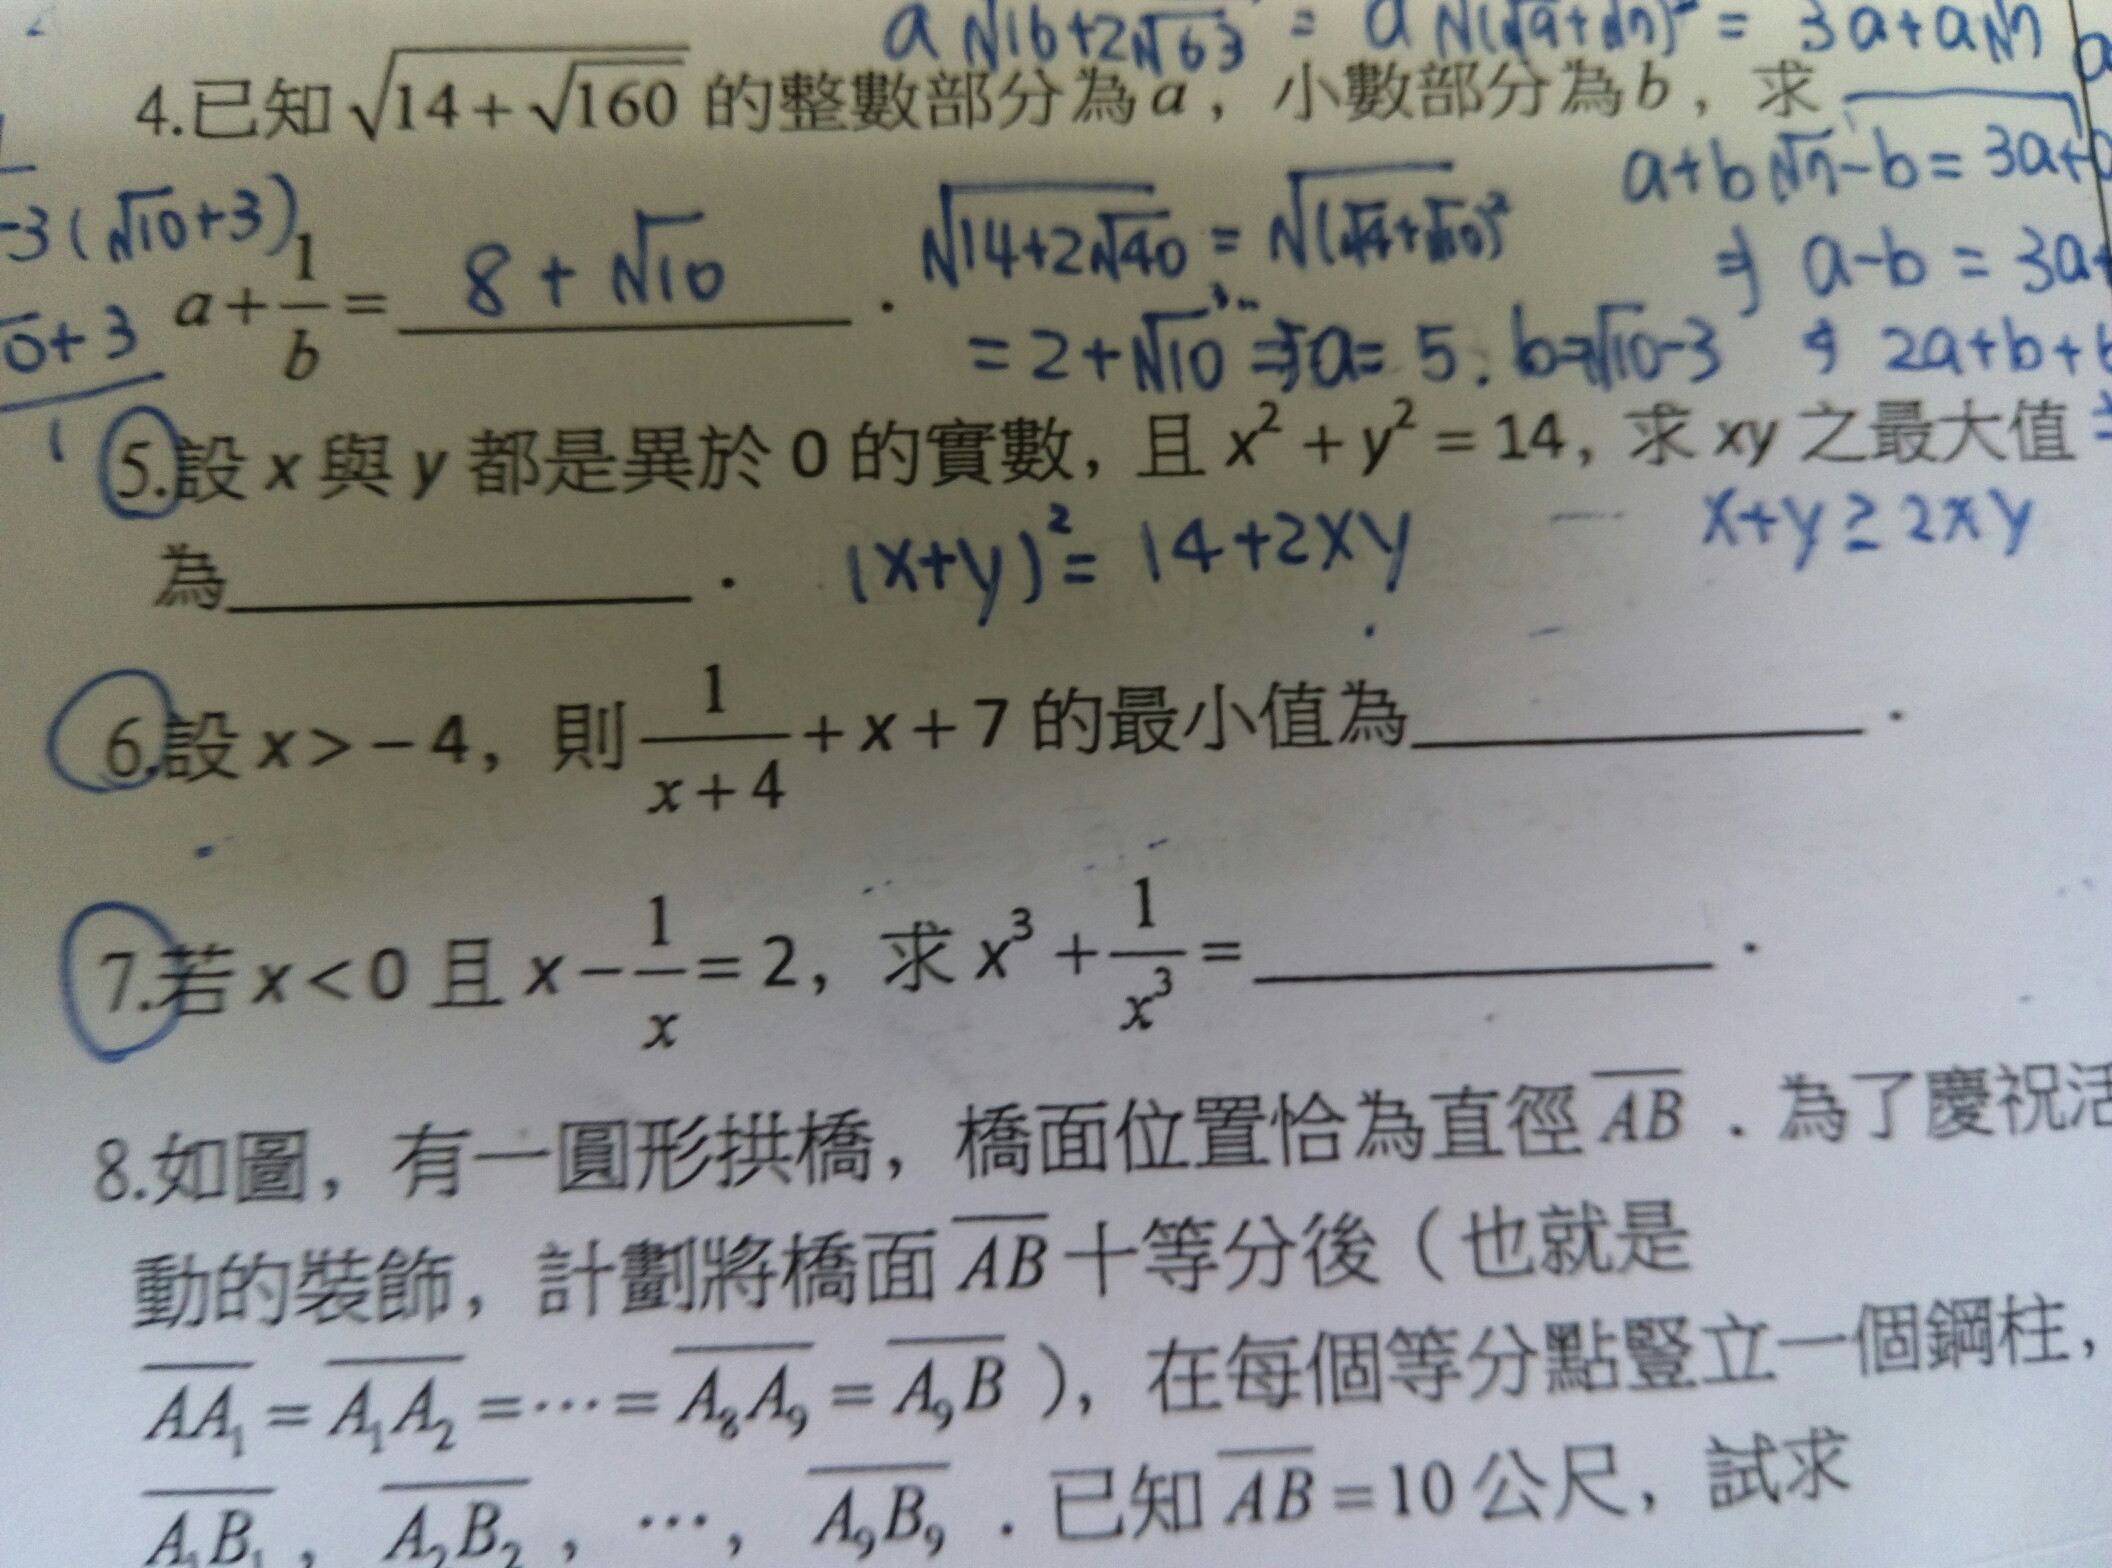 a√16+2√63 = a√(√9+√7)² = 3a+a√7
4.已知√14+√160 的整數部分為a，小數部分為b，求
a+b√7-b = 3a+
-3(√10+3)
a+1/b= 8+√10 .
√14+2√40 = √(√4+√10)²
⇒ a-b = 3a+
+3
= 2+√10 ⇒ a=5. b=√10-3
2a+b+b
5.設 x 與 y 都是異於 0 的實數，且 x²+y²=14，求 xy 之最大值
x+y≥2xy
為 .
(x+y)²=14+2xy
6.設 x>-4，則 1/(x+4) +x+7 的最小值為 .
7.若 x<0 且 x-1/x=2，求 x³+1/x³= .
8.如圖，有一圓形拱橋，橋面位置恰為直徑 AB．為了慶祝活
動的裝飾，計劃將橋面 AB 十等分後（也就是
AA₁=A₁A₂=⋯=A₈A₉=A₉B），在每個等分點豎立一個鋼柱，
A₁B₁，A₂B₂，⋯，A₉B₉．已知 AB=10 公尺，試求